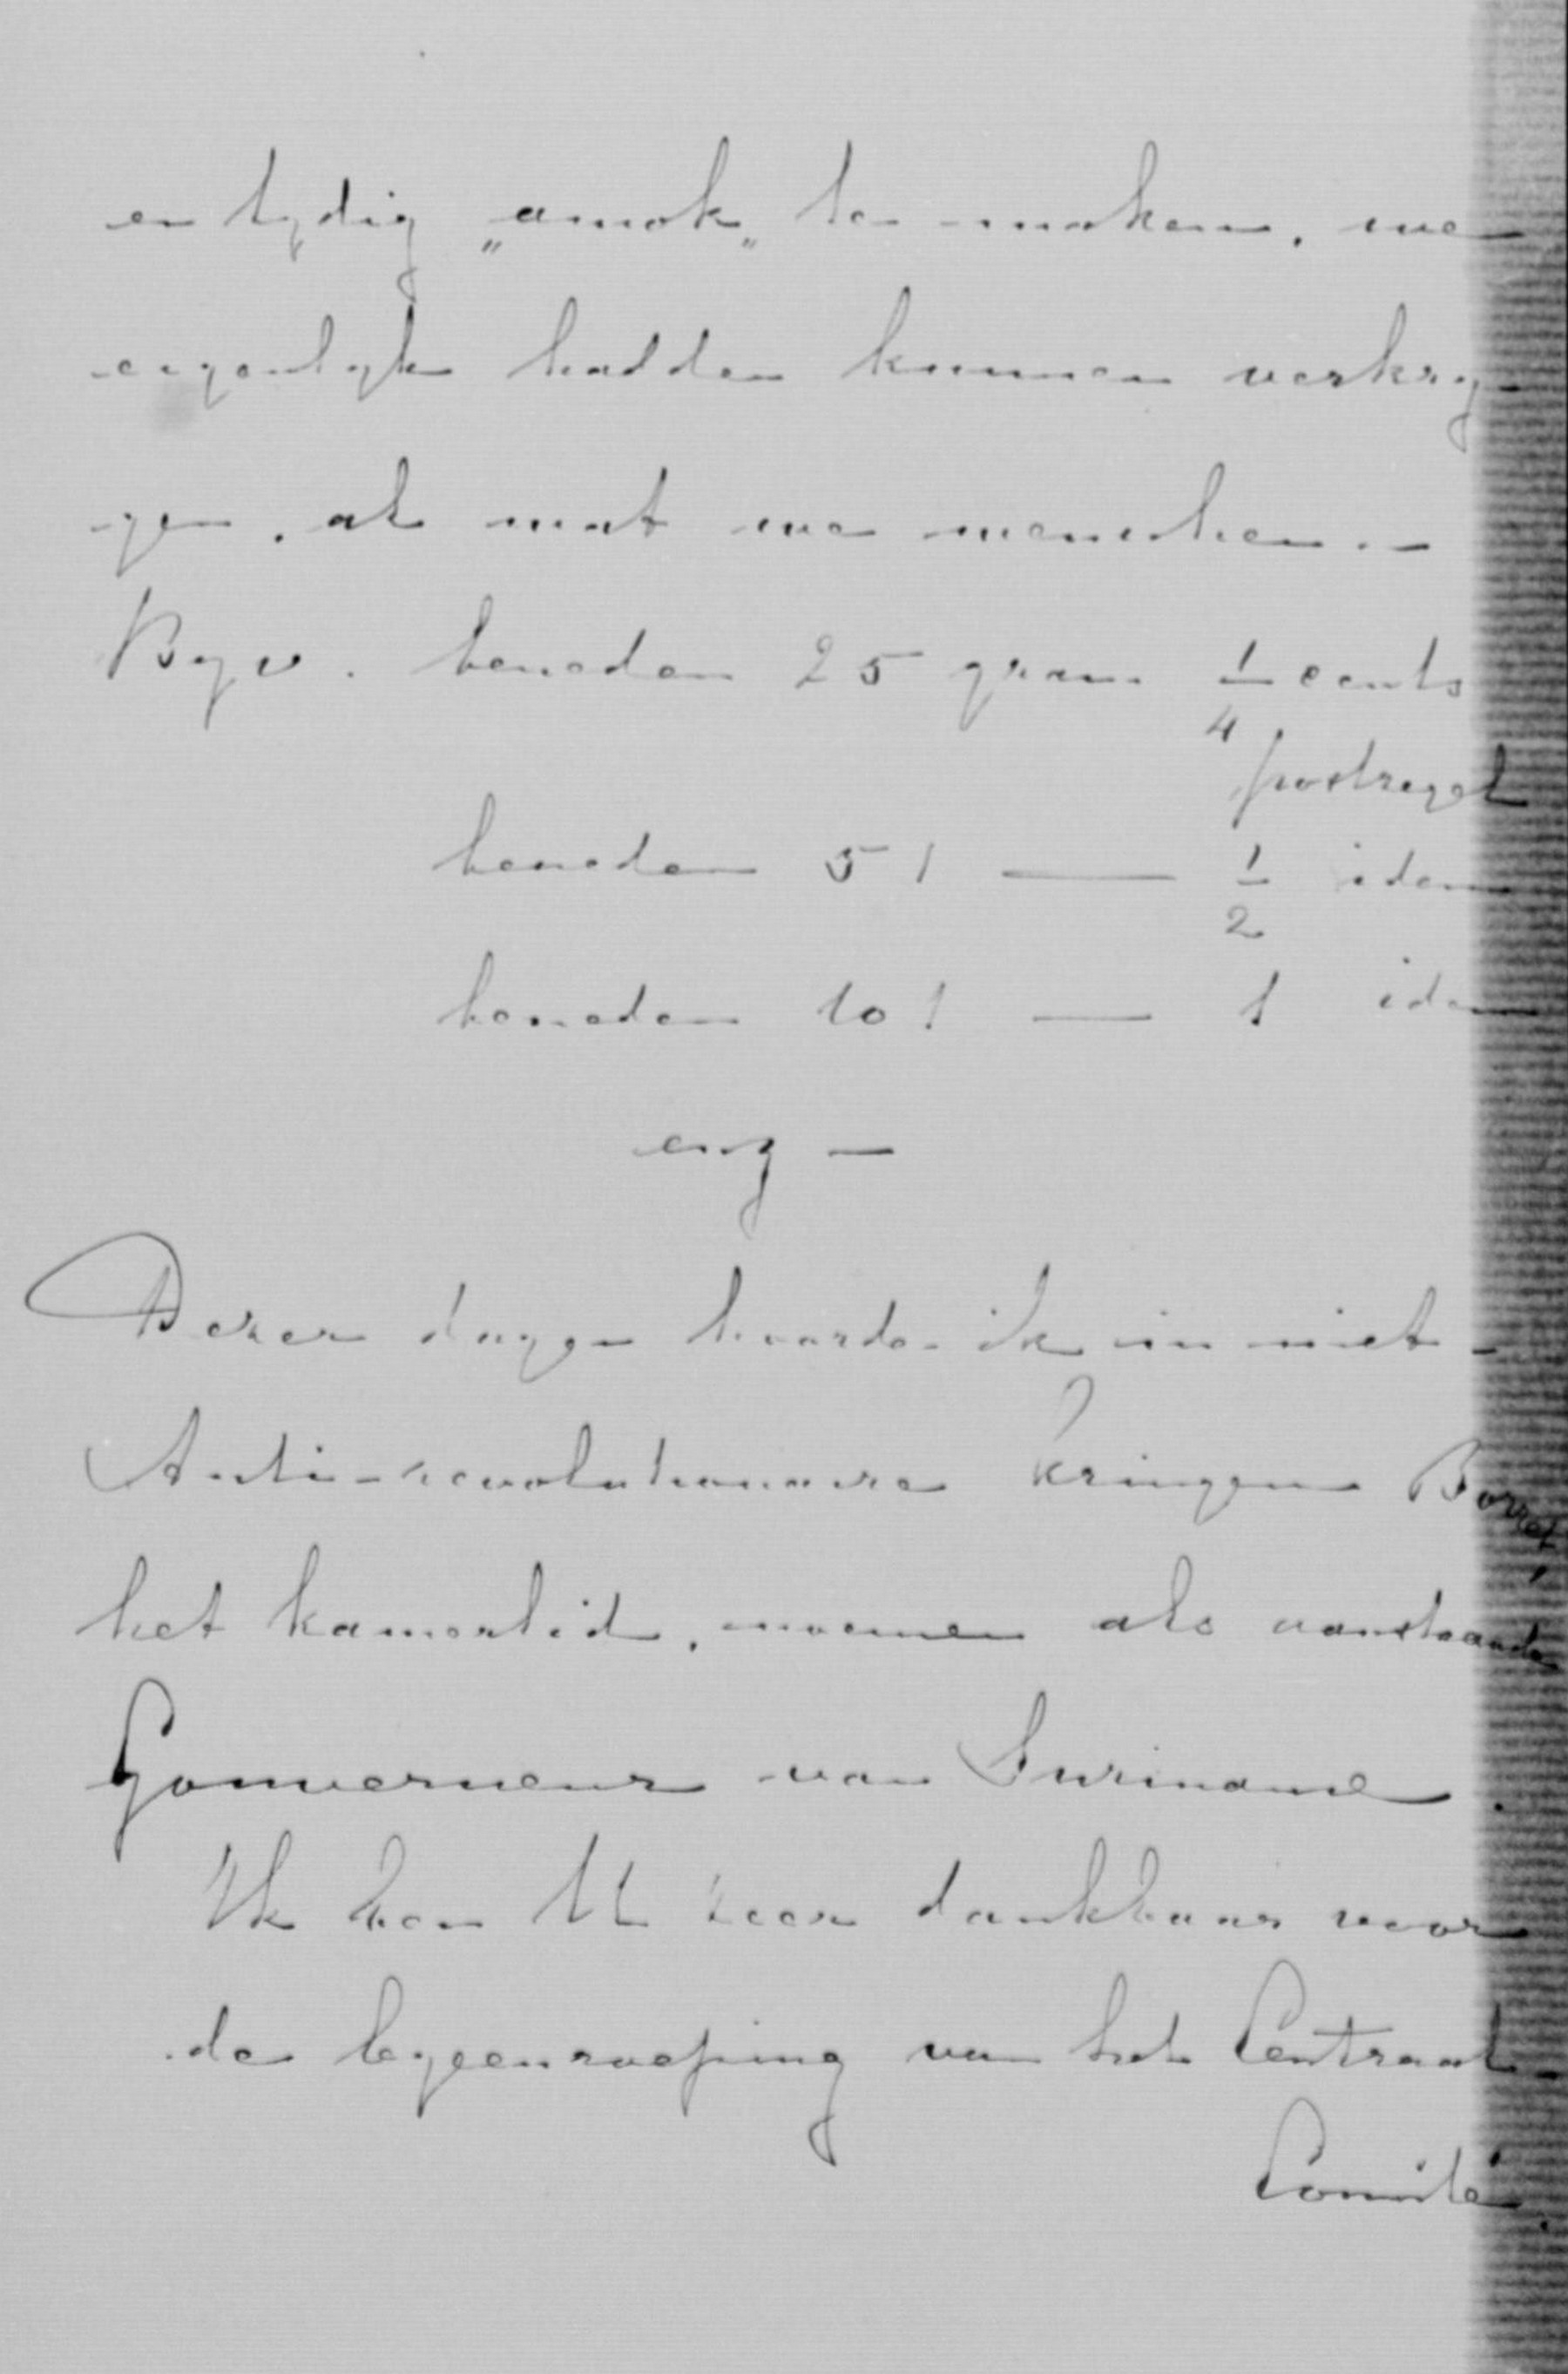 en tydig „amok„ te maken, we
eigenlyk hadden kunnen verkry-
gen, al wat we wenschen.–
Byv. beneden 25 gram 1/4 cents
postzegel
beneden 51 — 1/2 idem
beneden 101 — 1 idem
enz –
Dezer dagen hoorde ik in niet-
Anti-revolutionaire kringen Borret,
het kamerlid, noemen als aanstaande
Gouverneur van Suriname.
Ik ben U zeer dankbaar voor
de byeenroeping van het Centraal-
Comité.